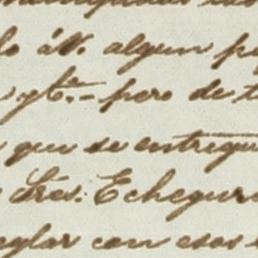 lo á V. algun
yta.- pero de
que se entregu
Sres. Echegur
eglar con esos